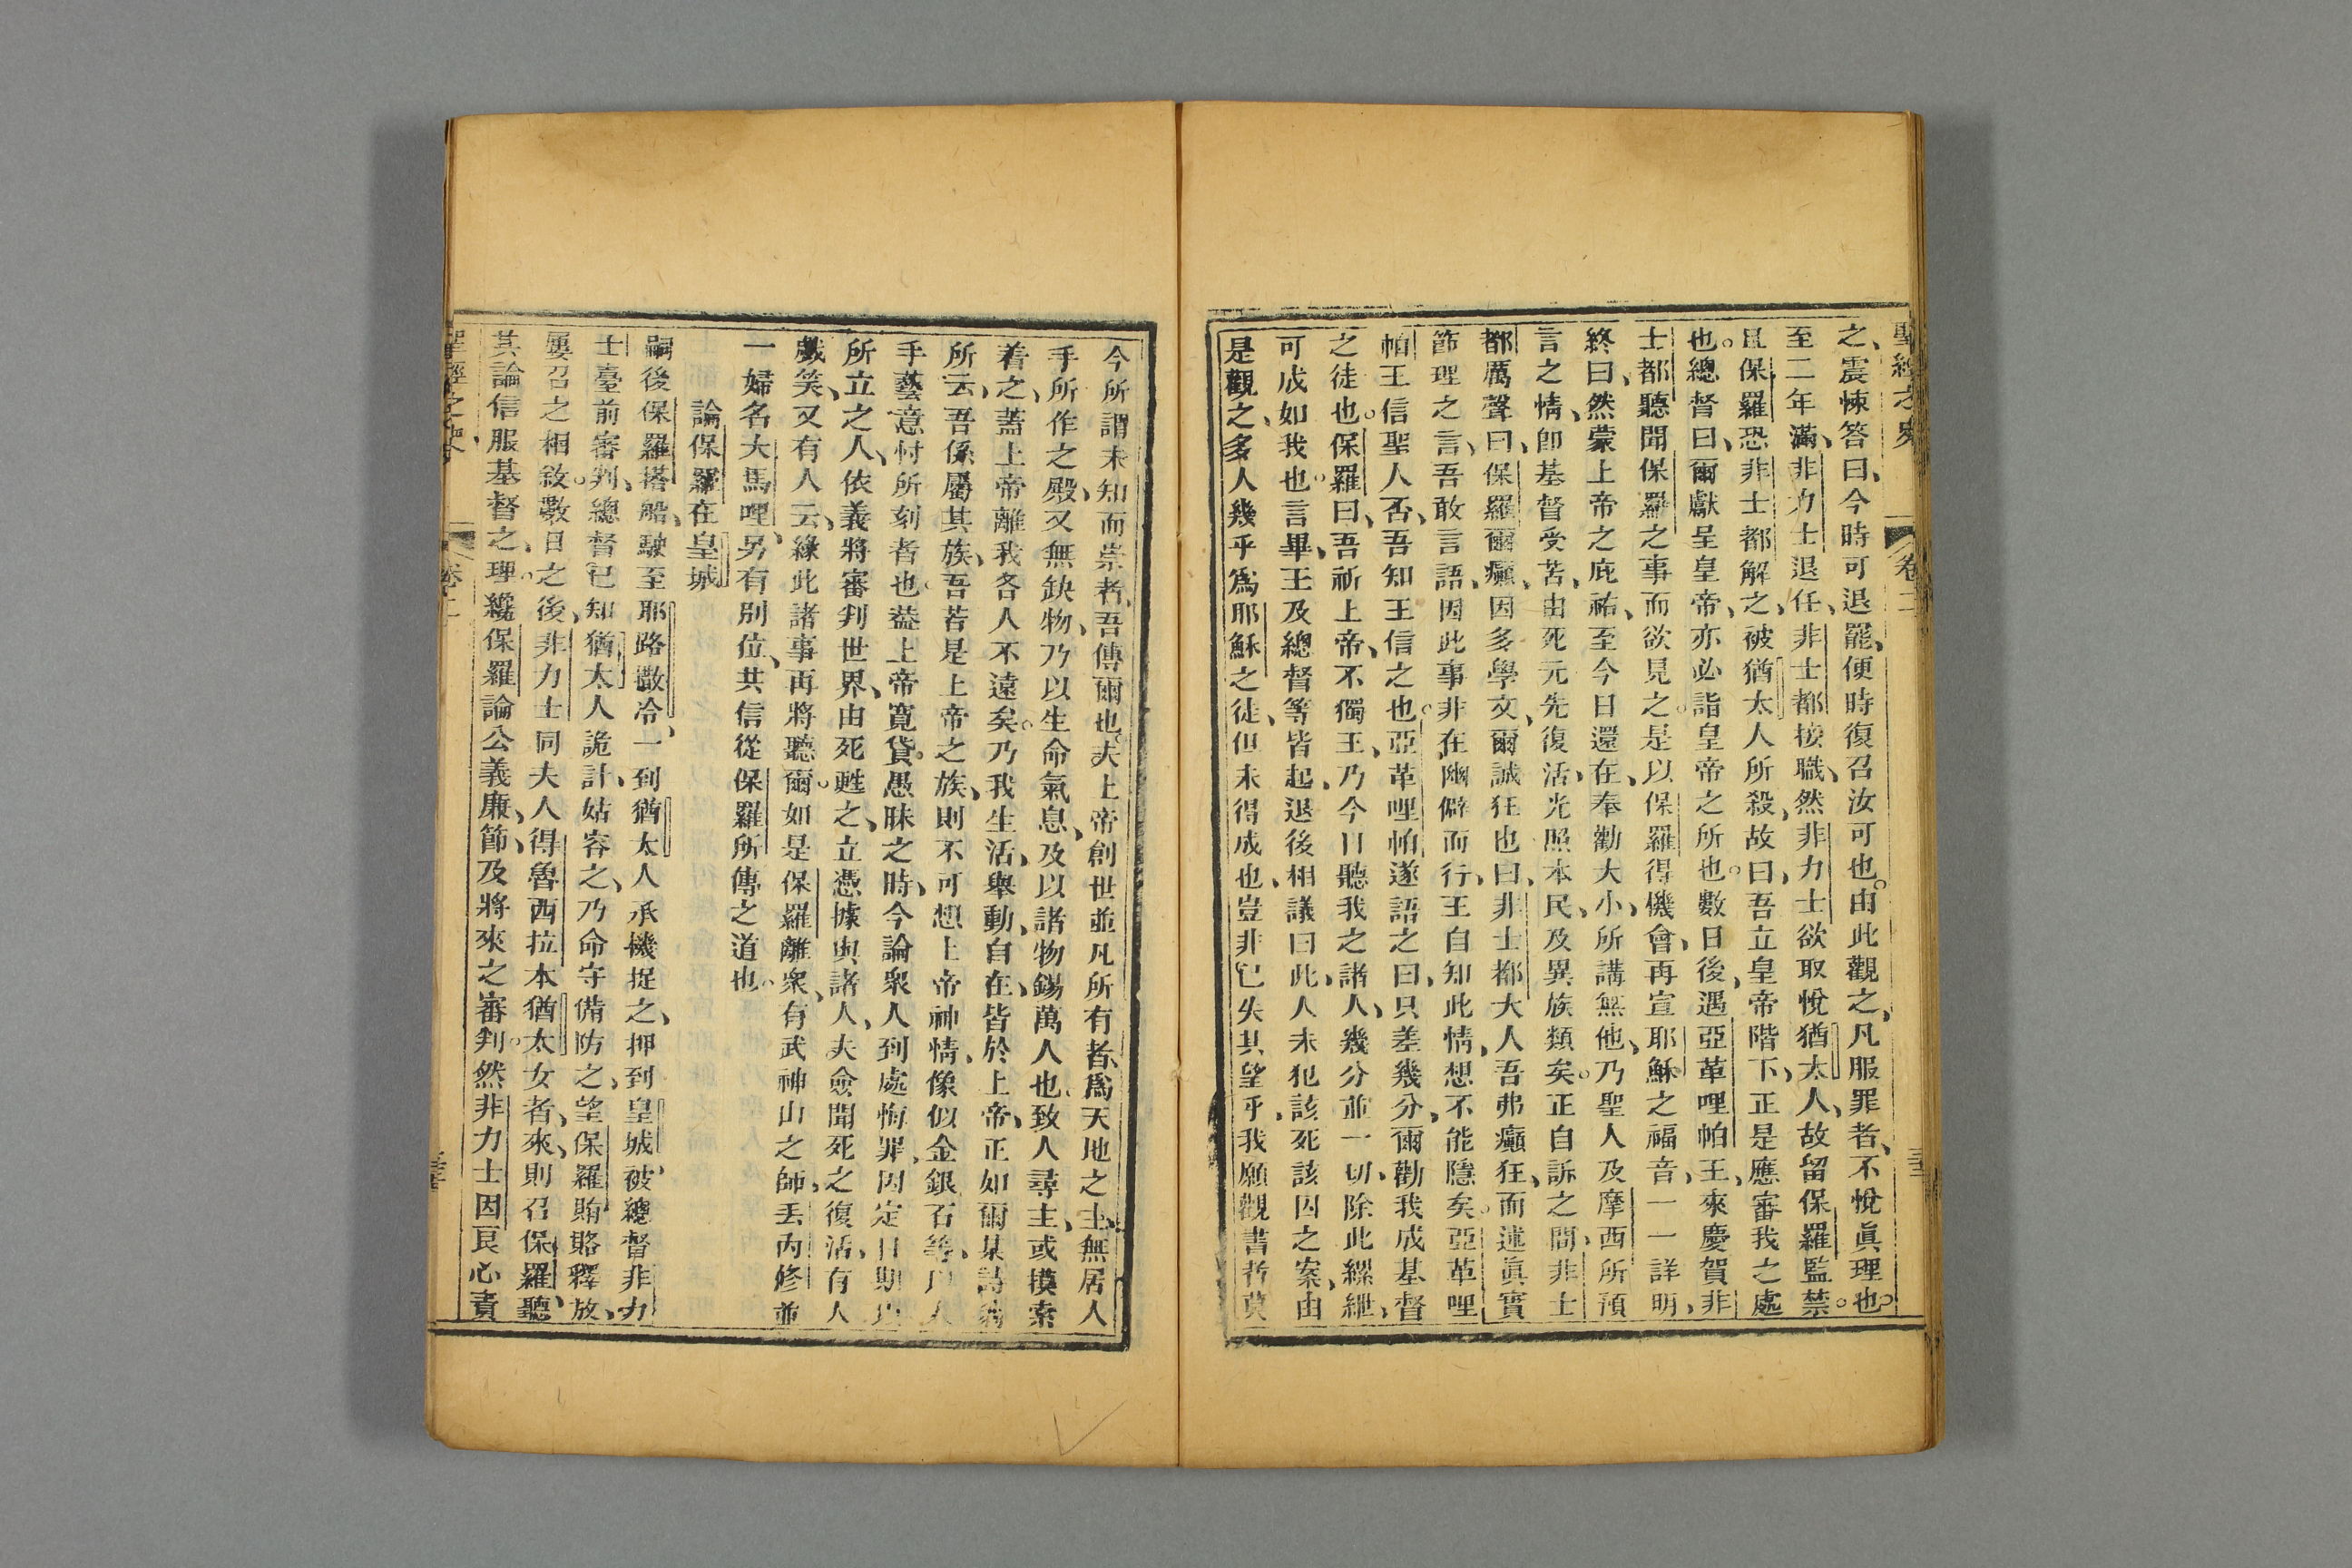 聖經之史 卷二
之、震悚答曰、今時可退罷、便時復召汝可也。由此觀之、凡服罪者、不悅眞理也。
至二年滿、非力士退任、非士都接職、然非力士欲取悅猶太人、故留保羅監禁。
且保羅恐非士都解之、被猶太人所殺、故曰、吾立皇帝階下、正是應審我之處
也。總督曰、爾獻呈皇帝、亦必詣皇帝之所也。數日後、遇亞革哩帕王、來慶賀非
士都、聽聞保羅之事、而欲見之。是以保羅得機會、再宣耶穌之福音、一一詳明、
終曰、然蒙上帝之庇祐、至今日還在、奉勸大小、所講無他、乃聖人及摩西所預
言之情、卽基督受苦、由死元先復活、光照本民、及異族類矣。正自訴之間、非士
都厲聲曰、保羅爾癲、因多學文、爾誠狂也、曰、非士都大人、吾弗癲狂、而述眞實
節理之言、吾敢言語、因此事非在幽僻而行、王自知此情、想不能隱矣。亞革哩
帕王信聖人否、吾知王信之也。亞革哩帕遂語之曰、只差幾分、爾勸我成基督
之徒也。保羅曰、吾祈上帝、不獨王、乃今日聽我之諸人、幾分並一切、除此縲紲、
可成如我也。言畢、王及總督等皆起、退後相議曰、此人未犯該死該囚之案、由
是觀之、多人幾乎爲耶穌之徒、但未得成也、豈非已失其望乎、我願觀書者莫
今所謂未知而崇者、吾傳爾也。夫上帝創世並凡所有者、爲天地之主、無居人
手所作之殿、又無缺物、乃以生命氣息、及以諸物錫萬人也、致人尋主、或摸索
着之、蓋上帝離我各人不遠矣。乃我生活、舉動、自在、皆於上帝、正如爾某詩翁
所云、吾係屬其族、吾若是上帝之族、則不可想上帝神情、像似金銀石等、以人
手藝意忖所刻者也。葢上帝寬貸愚昧之時、今論衆人到處悔罪、因定日期、以
所立之人、依義將審判世界、由死甦之、立憑據與諸人、夫僉聞死之復活、有人
戲笑、又有人云、緣此諸事、再將聽爾。如是保羅離衆、有武神山之師、丟丙修並
一婦名大馬哩、另有別位、共信從保羅所傳之道也。
論保羅在皇城
嗣後保羅搭船、駛至耶路撒冷、一到猶太人承機捉之、押到皇城、被總督非力
士臺前審判、總督已知猶太人詭計、姑容之、乃命守備防之、望保羅賄賂釋放、
屢召之相敘。數日之後、非力士同夫人得魯西拉、本猶太女者、來、則召保羅聽
其論信服基督之理。纔保羅論公義廉節、及將來之審判。然非力士因良心責
聖經之史 卷二